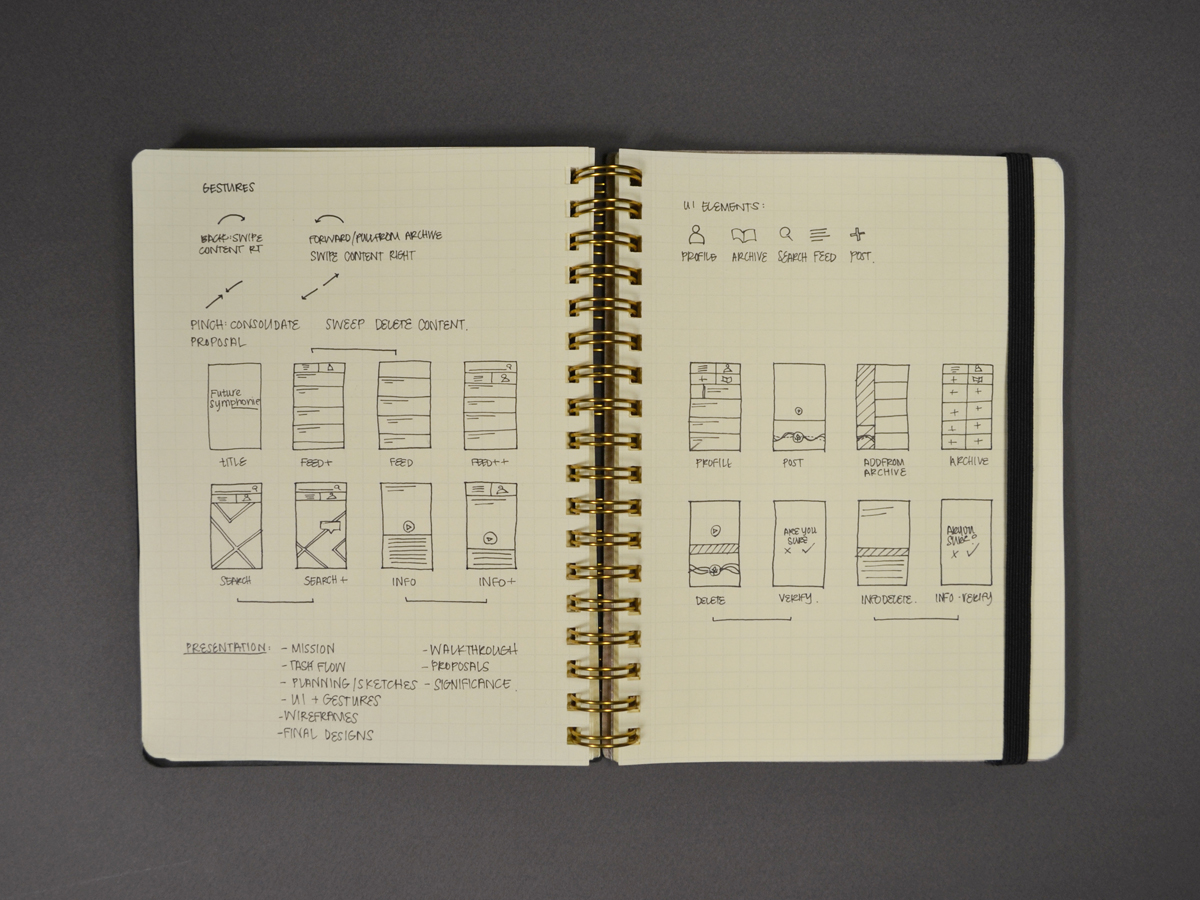 GESTURES
BACK: SWIPE
CONTENT RT
FORWARD/PULL FROM ARCHIVE
SWIPE CONTENT RIGHT
PINCH: CONSOLIDATE
PROPOSAL
SWEEP DELETE CONTENT.
Future
Symphonie
TITLE
FEED+
FEED
FEED++
SEARCH
SEARCH+
INFO
INFO+
PRESENTATION:
- MISSION
- TASK FLOW
- PLANNING/SKETCHES
- UI + GESTURES
- WIREFRAMES
- FINAL DESIGNS
- WALKTHROUGH
- PROPOSALS
- SIGNIFICANCE.
UI ELEMENTS:
PROFILE ARCHIVE SEARCH FEED POST.
PROFILE
POST
ADD FROM
ARCHIVE
ARCHIVE
ARE YOU
SURE?
ARE YOU
SURE?
DELETE
VERIFY.
INFO DELETE.
INFO - VERIFY